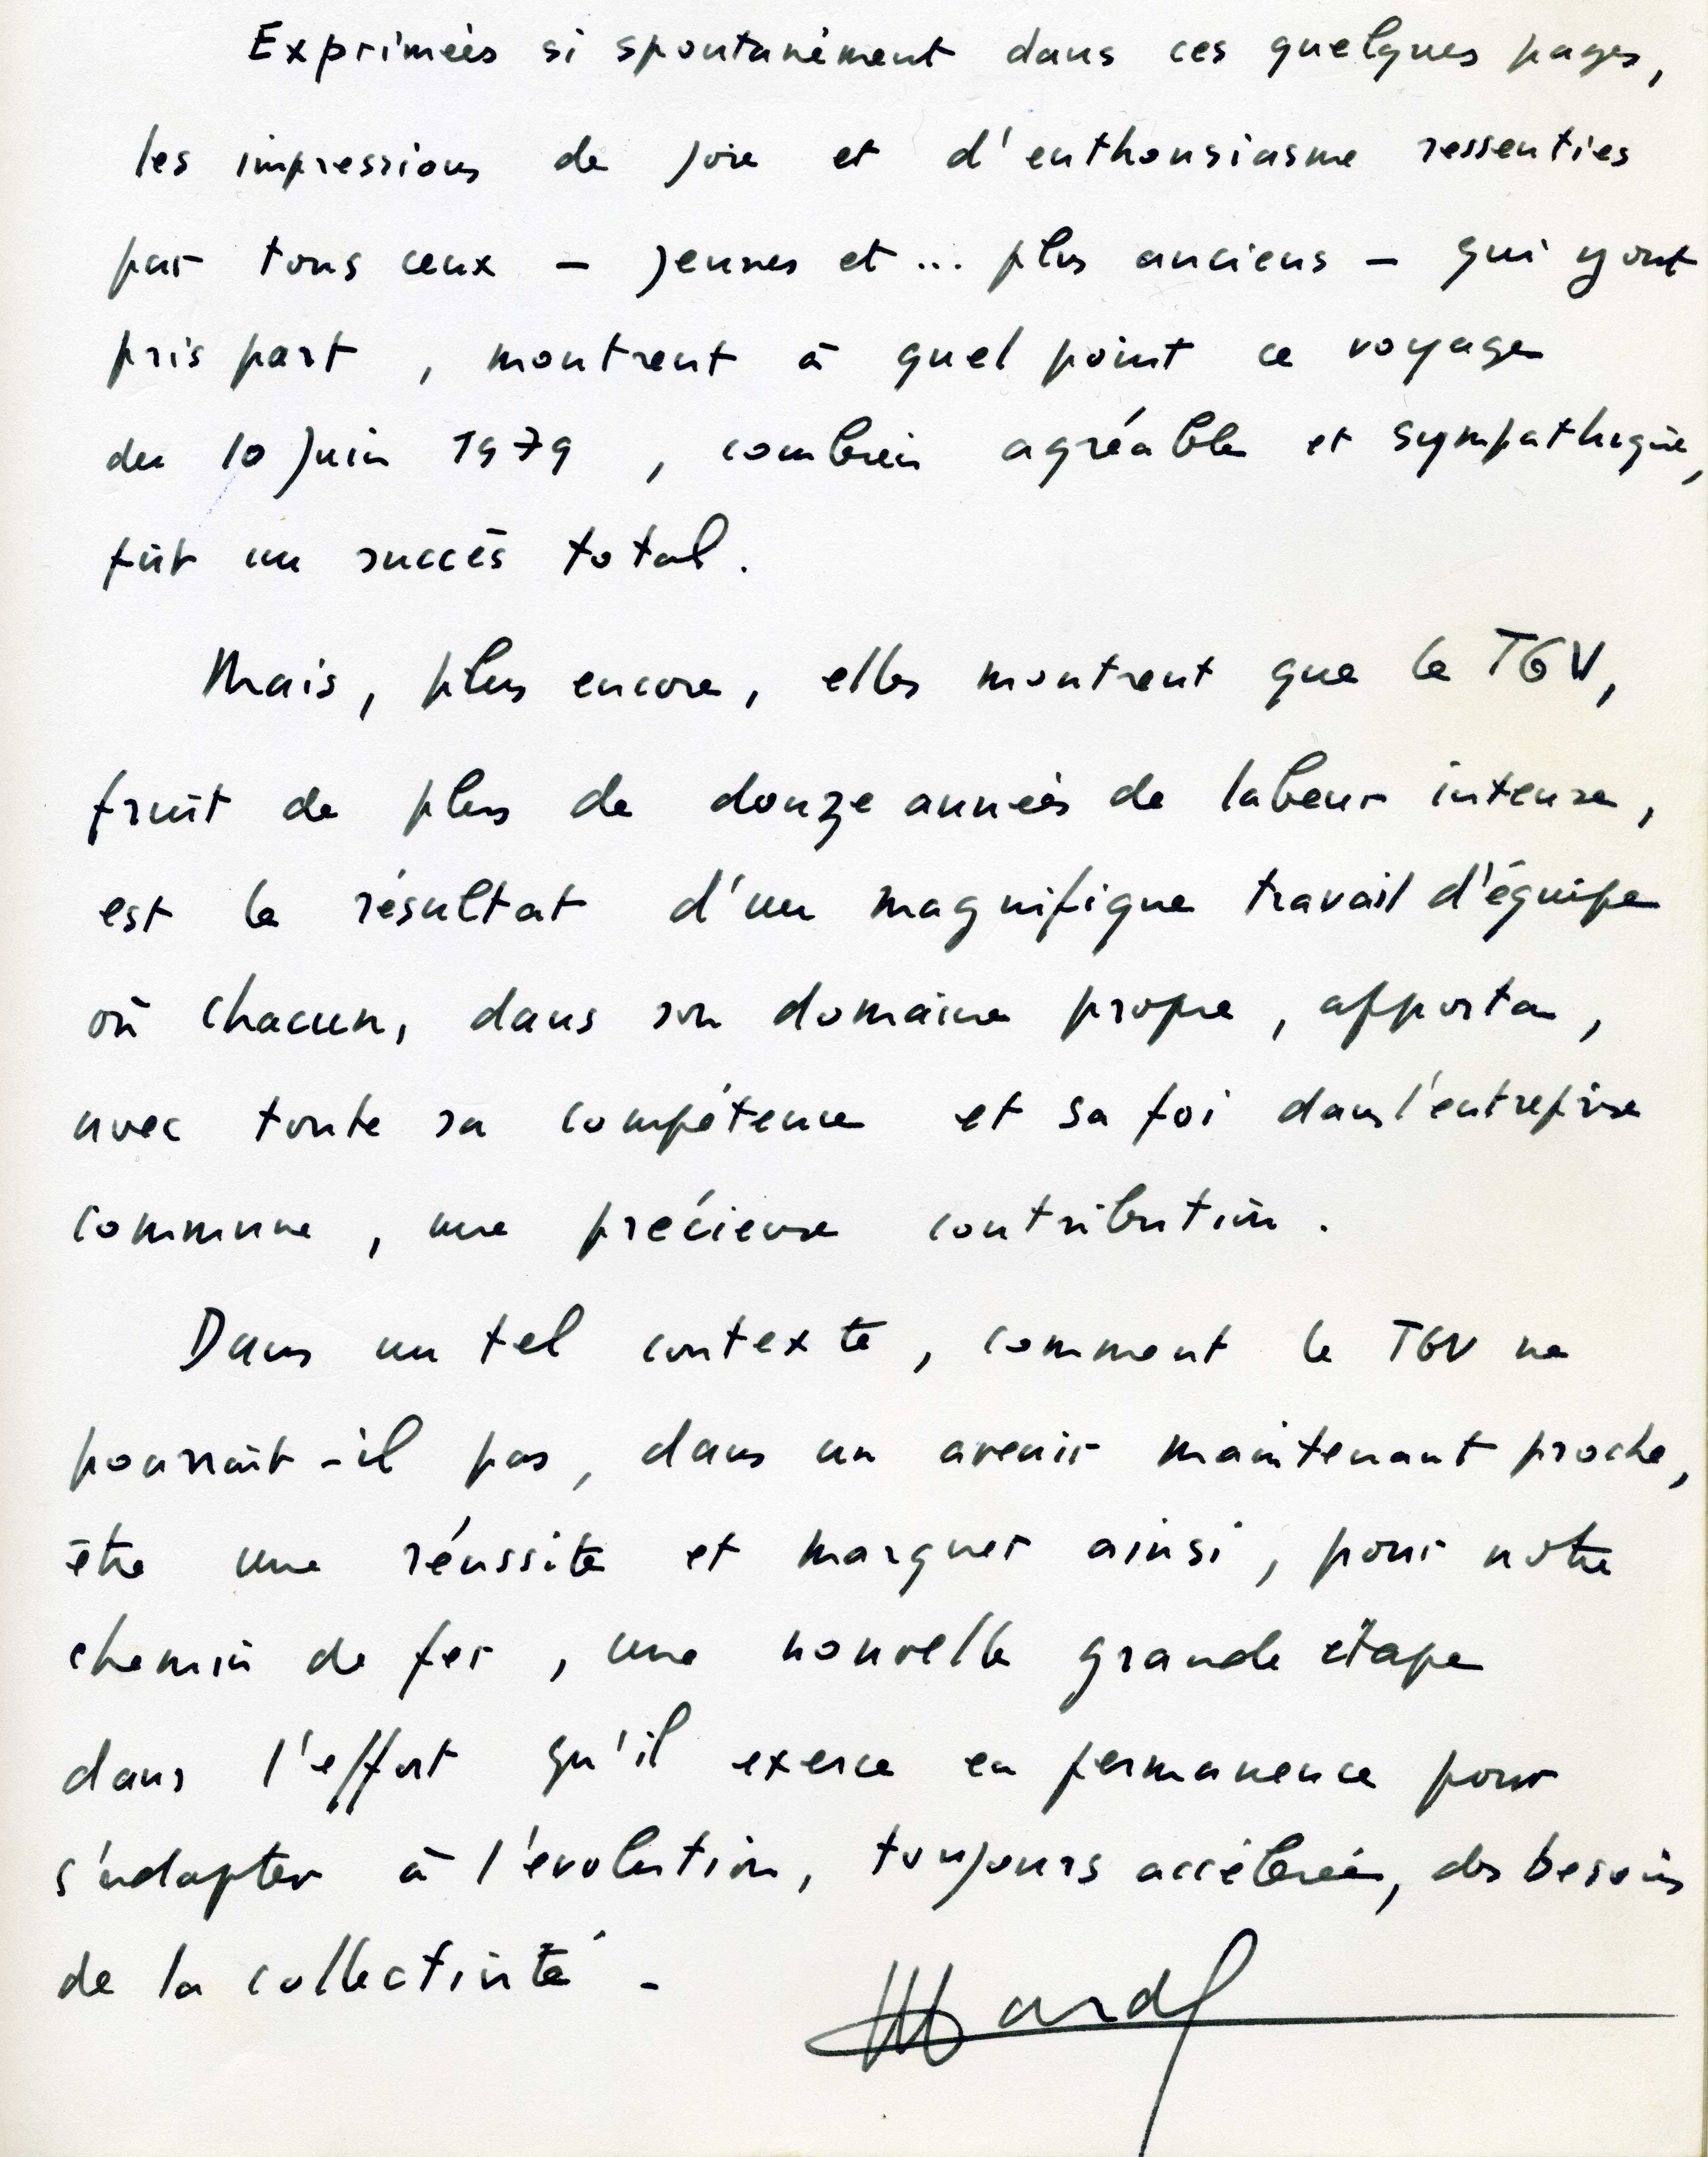 Exprimées si spontanément dans ces quelques pages,
les impressions de joie et d'enthousiasme ressenties
par tous ceux – jeunes et ... plus anciens – qui y ont
pris part, montrent à quel point ce voyage
du 10 juin 1979, combien agréable et sympathique,
fût un succès total.
Mais, plus encore, elles montrent que le TGV,
fruit de plus de douze années de labeur intense,
est le résultat d'un magnifique travail d'équipe
où chacun, dans son domaine propre, apporta,
avec toute sa compétence et sa foi dans l'entreprise
commune, une précieuse contribution.
Dans un tel contexte, comment le TGV ne
pourrait-il pas, dans un avenir maintenant proche,
être une réussite et marquer ainsi, pour notre
chemin de fer, une nouvelle grande étape
dans l'effort qu'il exerce en permanence pour
s'adapter à l'évolution, toujours accélérée, des besoins
de la collectivité –